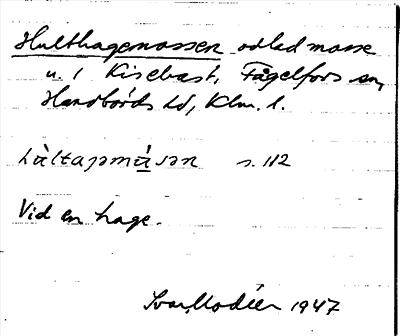 Hulthagemossen odlad mosse
u. 1 Kisebast, Fågelfors sn,
Handbörds hd, Klm. l.
hùltajəmǻsən s. 112
Vid en hage.
Ivar Modéer 1947